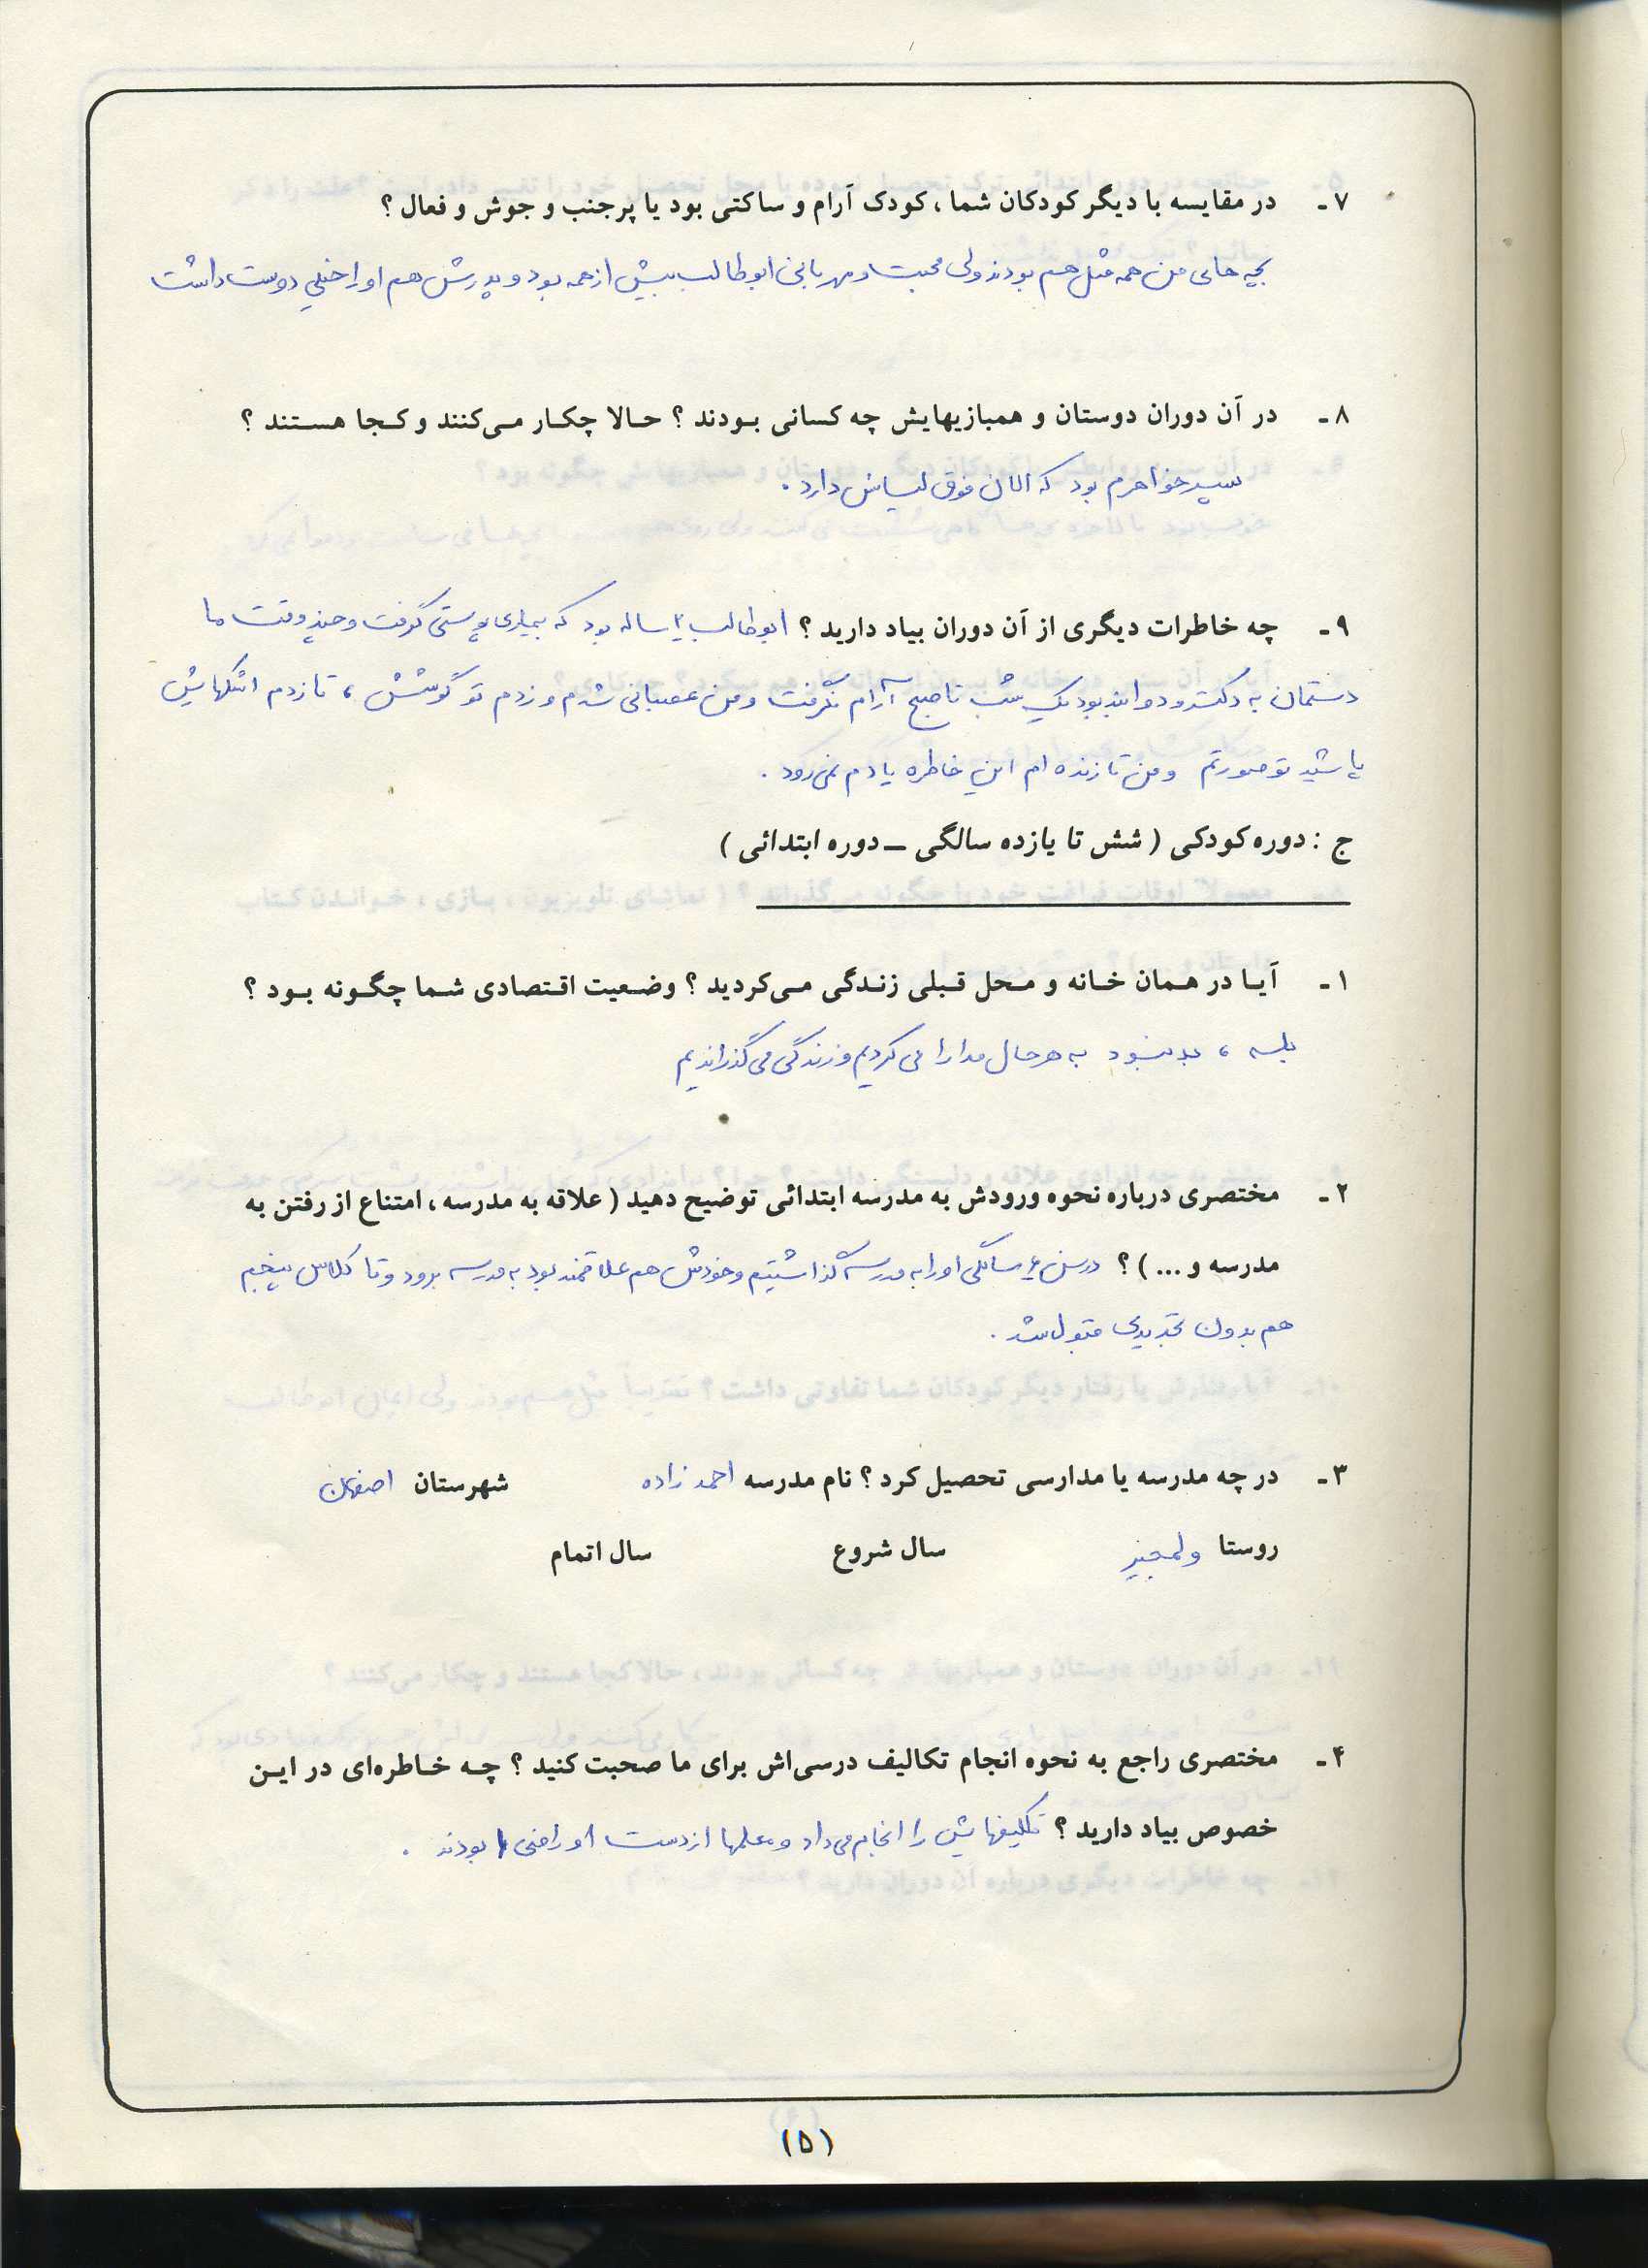 ۷ـ در مقایسه با دیگر کودکان شما ، کودک آرام و ساکتی بود یا پرجنب و جوش و فعال ؟
بچه های من همه مثل هم بودند ولی محبت و مهربانی ابوطالب بیش از همه بود و پدرش هم او را خیلی دوست داشت
۸ـ در آن دوران دوستان و همبازیهایش چه کسانی بودند ؟ حالا چکار می‌کنند و کجا هستند ؟
پسر خواهرم بود که الان فوق لیسانس دارد .
۹ـ چه خاطرات دیگری از آن دوران بیاد دارید ؟ ابوطالب ۲ ساله بود که بیماری پوستی گرفت و چند وقت ما
دستمان به دکتر و دوا بند بود یک شب تا صبح آرام نگرفت و من عصبانی شدم و زدم تو گوشش ، تا زدم اشکهایش
پاشید تو صورتم و من تا زنده ام این خاطره یادم نمی رود .
ج : دوره کودکی ( شش تا یازده سالگی ــ دوره ابتدائی )
۱ـ آیا در همان خانه و محل قبلی زندگی می‌کردید ؟ وضعیت اقتصادی شما چگونه بود ؟
بله ، بد نبود به هر حال مدارا می کردیم و زندگی می گذراندیم
۲ـ مختصری درباره نحوه ورودش به مدرسه ابتدائی توضیح دهید ( علاقه به مدرسه ، امتناع از رفتن به
مدرسه و ... ) ؟ در سن ۶ سالگی او را به مدرسه گذاشتیم و خودش هم علاقمند بود به مدرسه برود و تا کلاس پنجم
هم بدون تجدیدی قبول شد .
۳ـ در چه مدرسه یا مدارسی تحصیل کرد ؟ نام مدرسه احمد زاده شهرستان اصفهان
روستا سال شروع سال اتمام
۴ـ مختصری راجع به نحوه انجام تکالیف درسی‌اش برای ما صحبت کنید ؟ چه خاطره‌ای در این
خصوص بیاد دارید ؟ تکلیفهایش را انجام می داد و معلمها از دست او راضی بودند .
(۵)